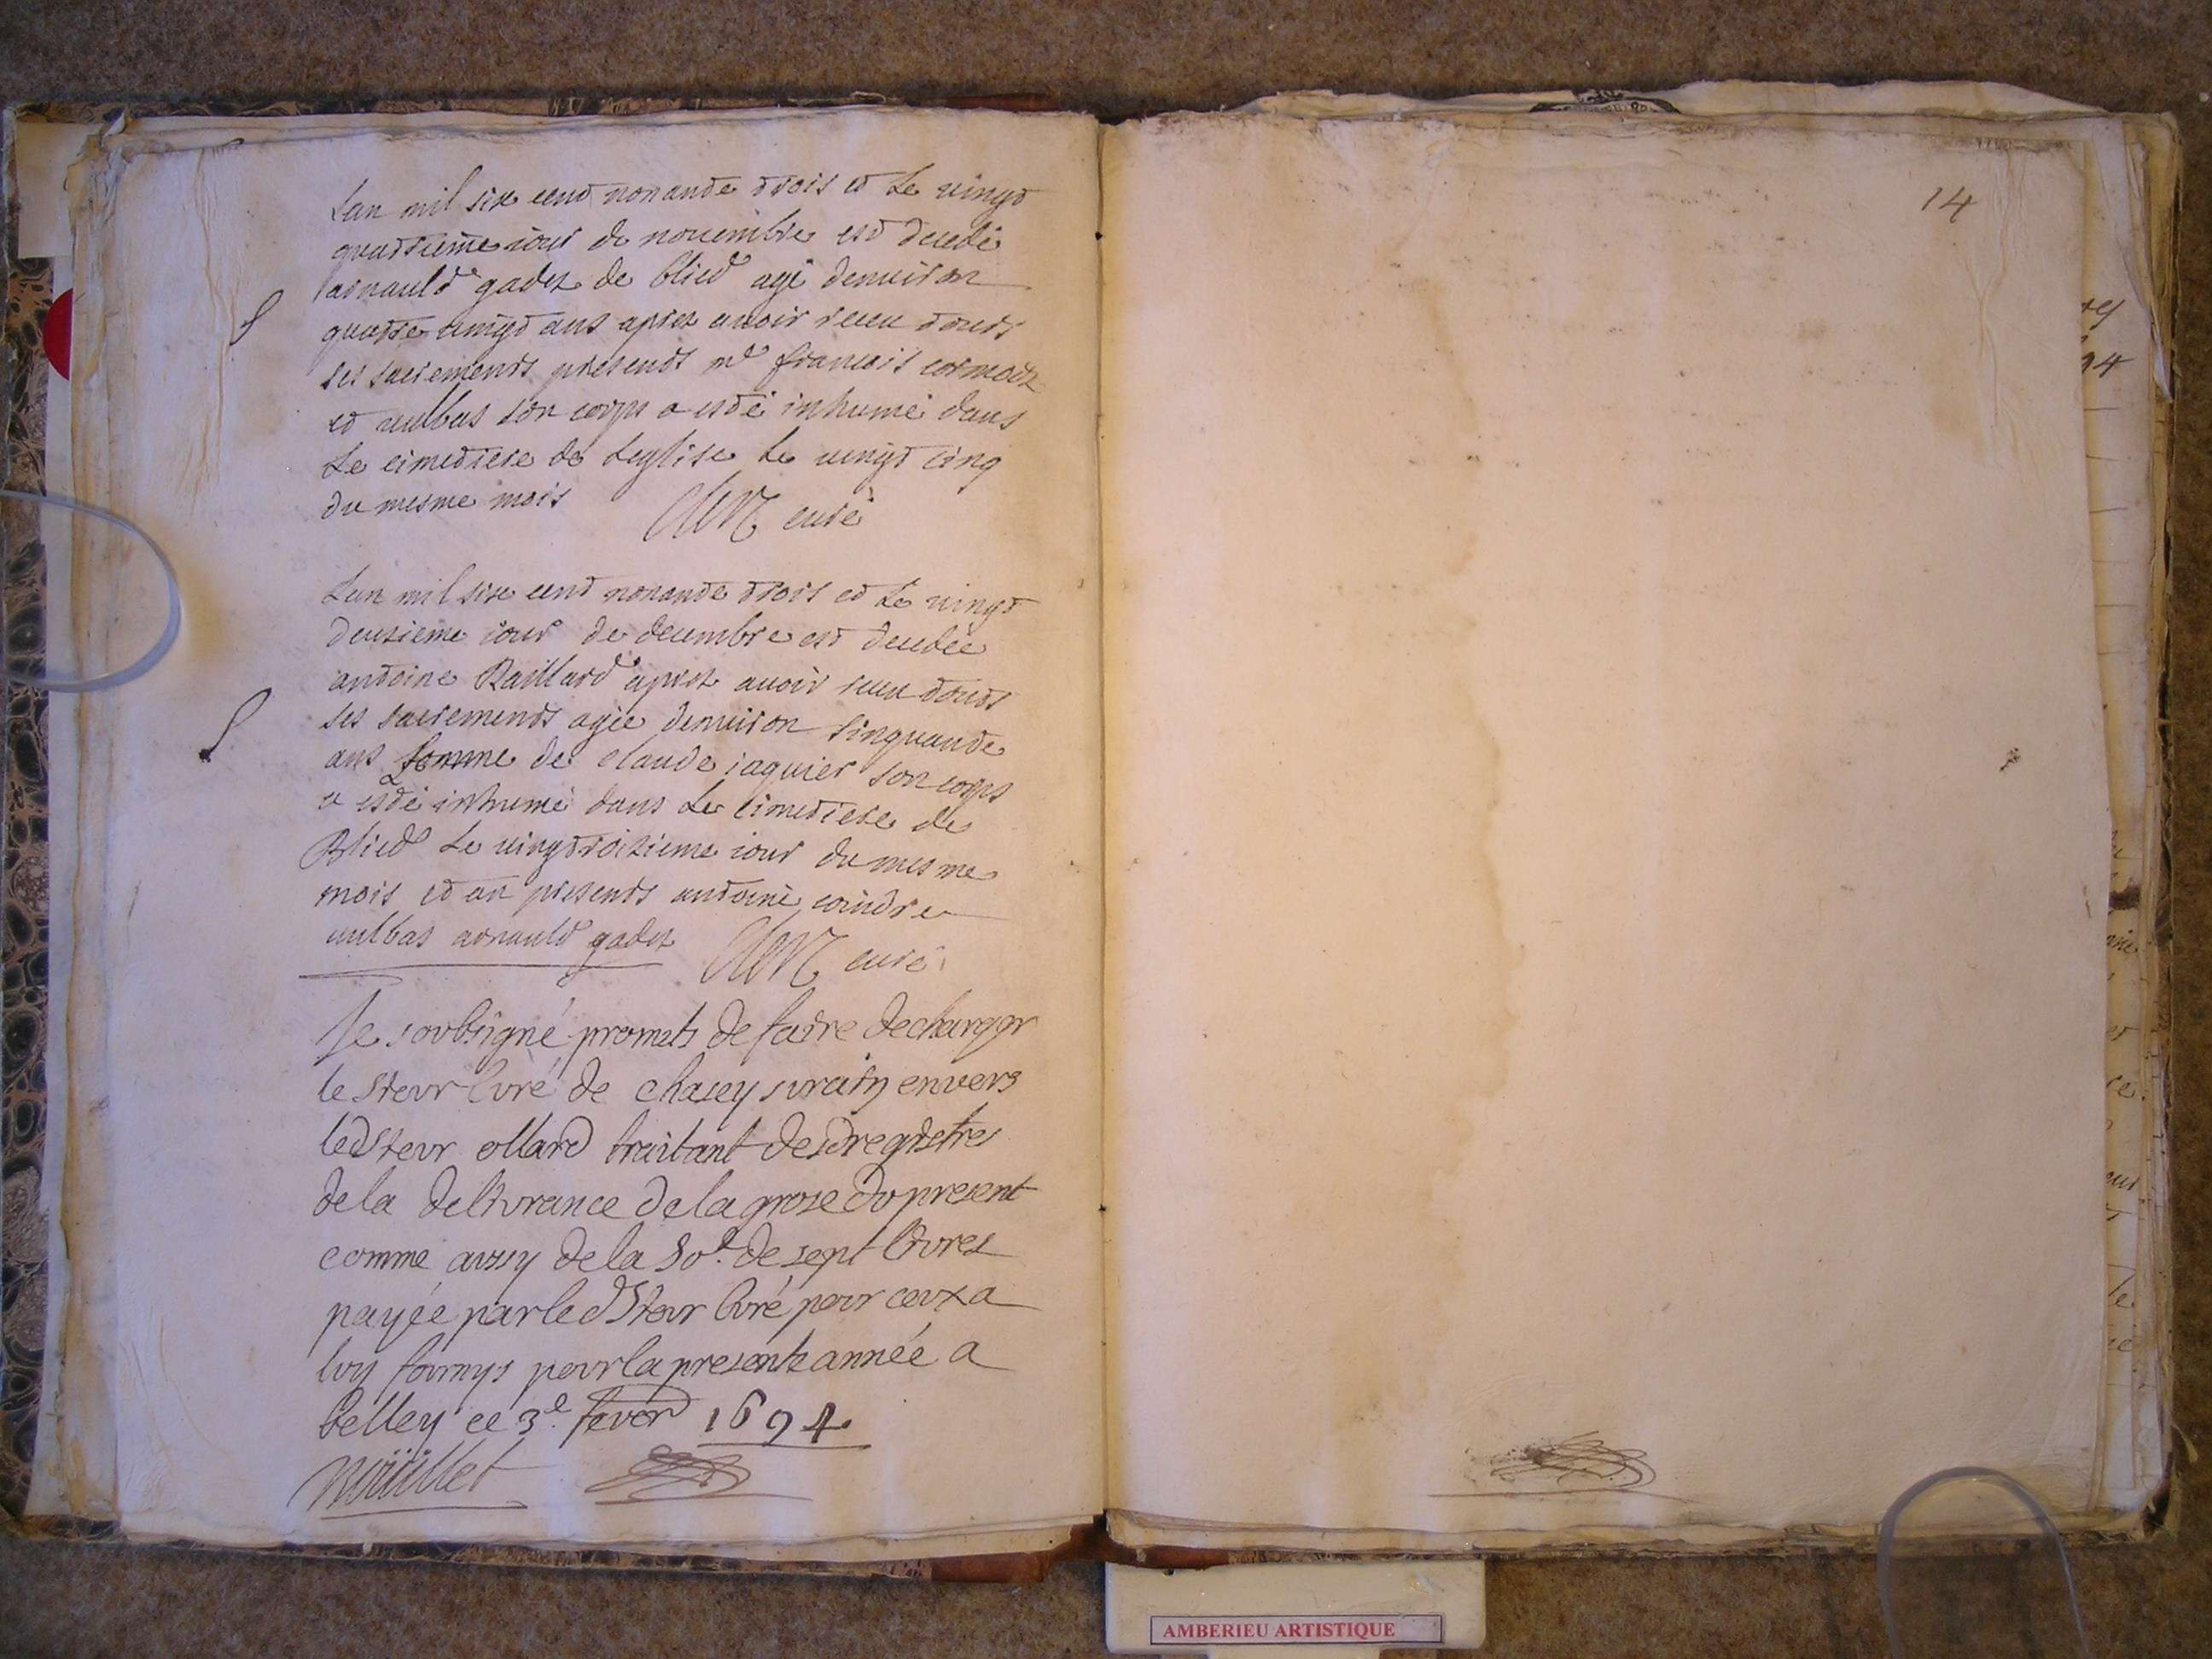 Lan mil six cent nonante trois et le vingt
quatrieme iour de nouembre est decedé
arnauld gadet de blied agé denuiron
quatre uingt ans apres auoir receu touts
ses sacrements presents md francois cormoz
et uulbas son corps a esté inhumé dans
Le cimetiere de Leglise Le uingt cinq
du mesme mois
curé
Lan mil six cent nonante trois et Le vingt
deusieme iour de decembre est decedée
antoine Raillard apres auoir receu touts
ses sacrements agée denuiron sinquante
ans femme de claude iaquier son corps
a esté inhumé dans Le cimetiere de
Blied Le uingtroisieme iour du mesme
mois et an presents antoine coindre
uulbas arnauld gadet
curé
Je soubsigné promets de faire decharger
le Sieur Curé de chasey surain envers
led Sieur ollard traitant desd registres
de la delivrance de la grose du present
comme aussy de la So.e de sept livres
payée par led Sieur Curé pour ceux a
luy fournys pour la presente année a
belley ce 3e fevr 1694
14
AMBERIEU ARTISTIQUE